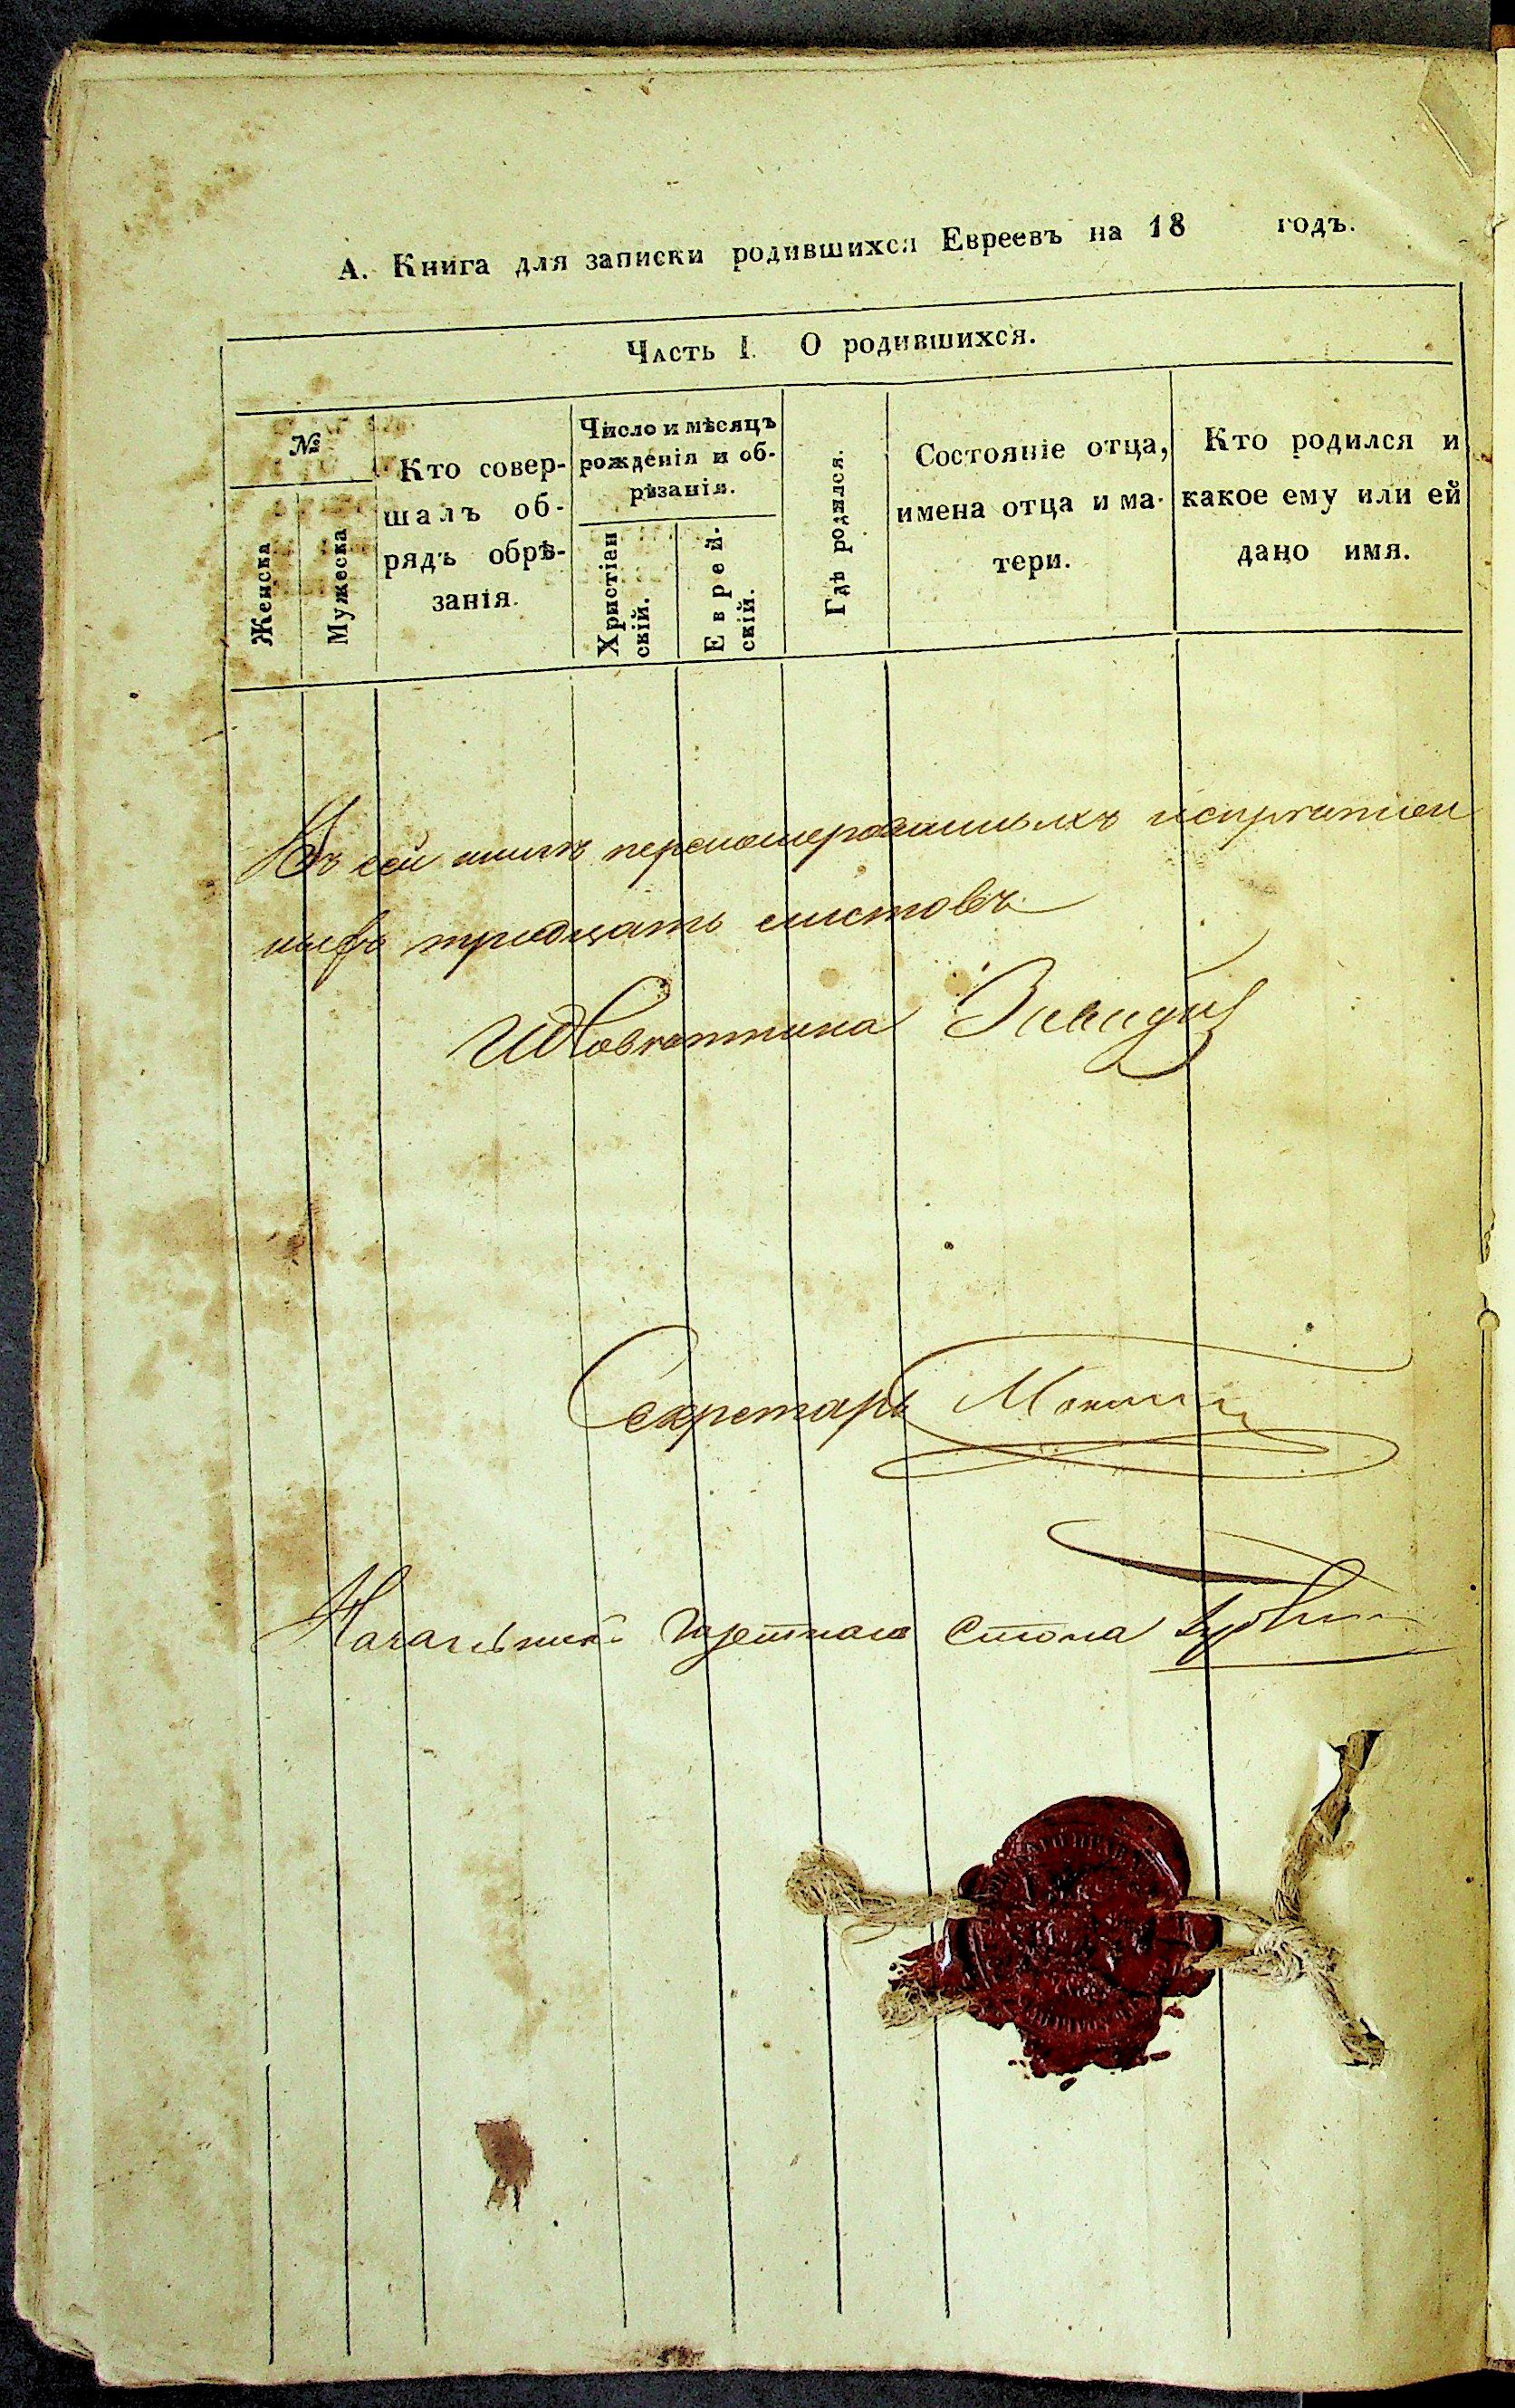 А. Книга для записки родившихся Евреевъ на 18 годъ.
Часть I. О родившихся.
№
Женска
Мужеска
Кто совер-
шалъ об-
рядъ обрѣ-
занія.
Число и мѣсяцъ
рожденія и об-
рѣзанія.
Христіан
скій.
Еврей-
скій.
Гдѣ родился.
Состояніе отца,
имена отца и ма-
тери.
Кто родился и
какое ему или ей
дано имя.
Въ сей книгѣ перенумерованныхъ и скрѣплен
ныхъ тридцать листовъ
Секретарь
Начальникъ Газетнаго Стола